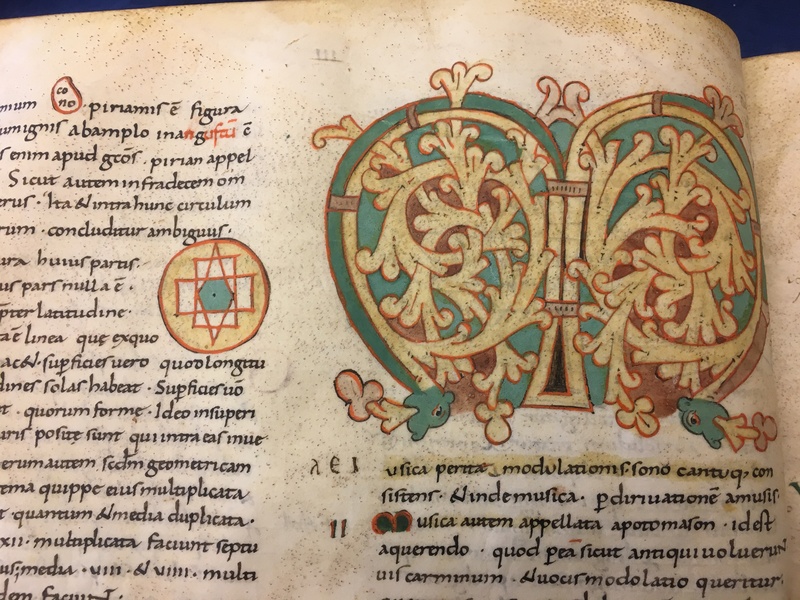 cono
piriamis ē figura
abamplo inangustū ē
enim apud gcōs · pirian appel
Sicut autem infra decem om
Ita & intra hunc circulum
concluditur ambiguus ·
huius partis
pars nulla ē ·
latitudine ·
linea que exquo
superficies uero quod longitu
dines solas habeat · Superficies uō
quorum forme · Ideo insuperi
posite sunt qui intra eas inue
erum autem scdm geometricam
quippe eius multiplicata
quantum & media duplicata ·
xii · multiplicata faciunt septu
media · viii · & viiii · multi
dem faciunt ·
M
usica peritia modulationis sono cantuq; con
sistens · & inde musica · p diriuationē amusis
II
Musica autem appellata apotomason · id est
aquerendo · quod p ea sicut antiqui uoluerun
uis carminum · & uocis modolatio queritur ·